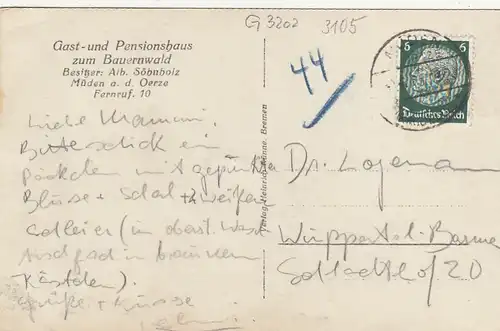 G 3202 3105
Gast- und Pensionshaus
zum Bauernwald
Besitzer: Alb. Söhnholz
Müden a. d. Oerze
Fernruf. 10
44
6 6
Deutsches Reich
Liebe Mammi.
Bitte schick ein
Päckchen mit gepunkte
Bluse + Schal + 2 weißen
(in oberst.
in braunen
Kästchen).
Grüße + Küsse
Dr. Logemann
Wuppertal-Barmen
20
Verlag Heinrich Hönne, Bremen